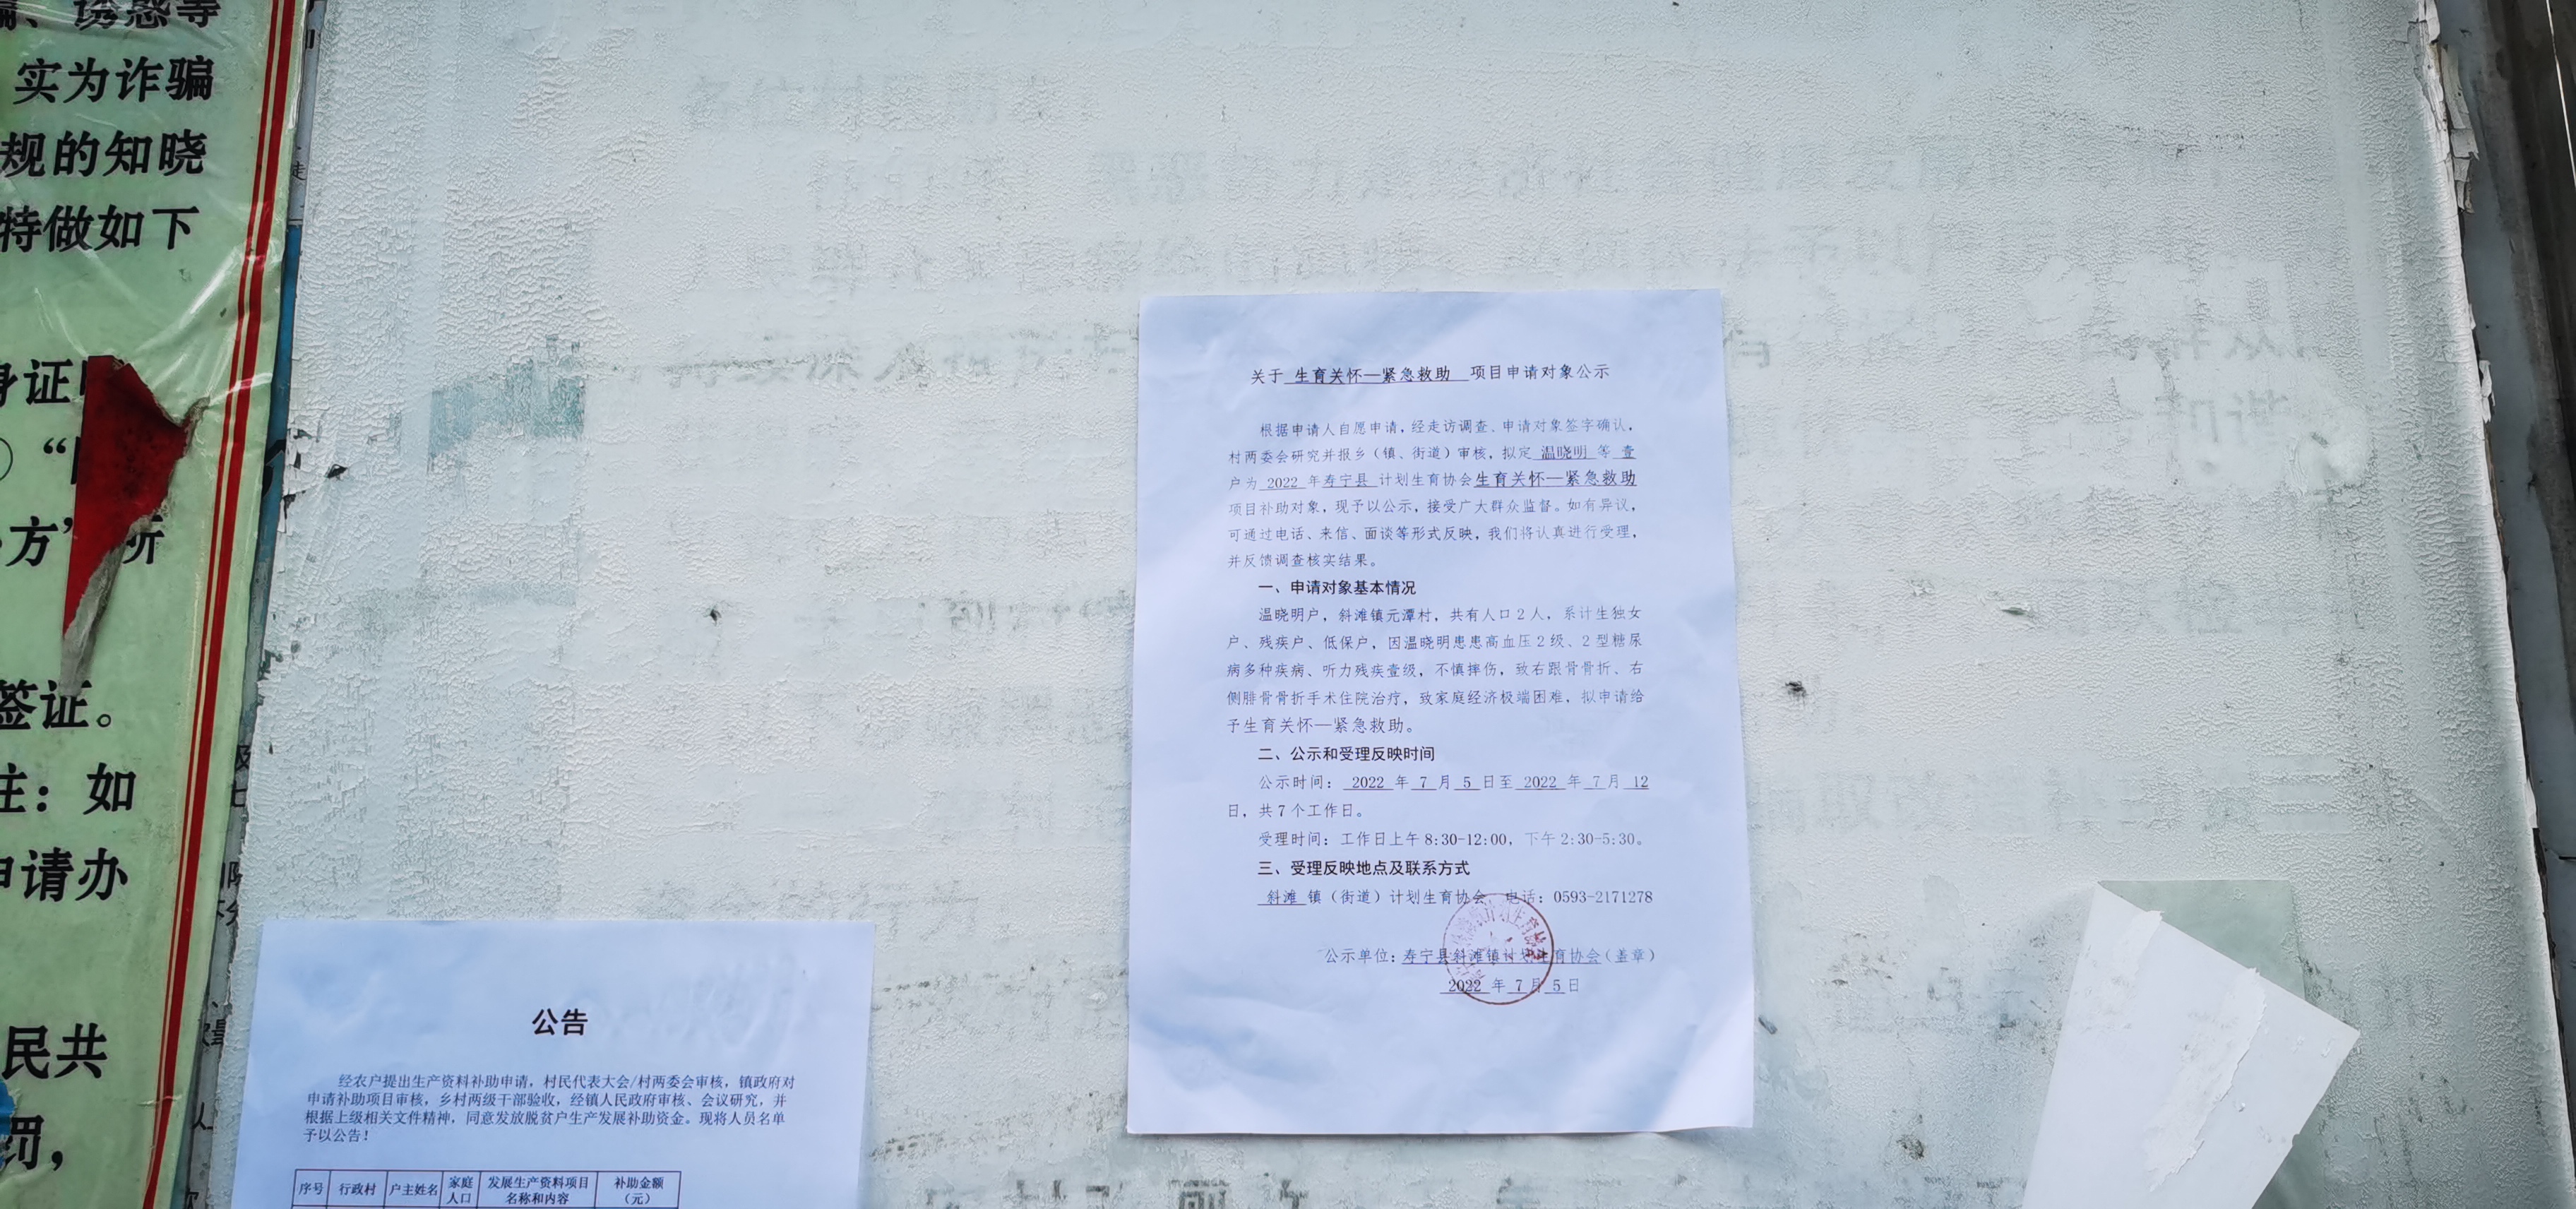 骗、诱惑等
实为诈骗
规的知晓
特做如下
身证
方”所
签证。
注：如
申请办
民共
罚，
关于 生育关怀—紧急救助 项目申请对象公示
根据申请人自愿申请，经走访调查、申请对象签字确认，
村两委会研究并报乡（镇、街道）审核，拟定 温晓明 等 壹
户为 2022 年寿宁县 计划生育协会生育关怀—紧急救助
项目补助对象，现予以公示，接受广大群众监督。如有异议，
可通过电话、来信、面谈等形式反映，我们将认真进行受理，
并反馈调查核实结果。
一、申请对象基本情况
温晓明户，斜滩镇元潭村，共有人口 2 人，系计生独女
户、残疾户、低保户，因温晓明患患高血压 2 级、2 型糖尿
病多种疾病、听力残疾壹级，不慎摔伤，致右跟骨骨折、右
侧腓骨骨折手术住院治疗，致家庭经济极端困难，拟申请给
予生育关怀—紧急救助。
二、公示和受理反映时间
公示时间： 2022 年 7 月 5 日至 2022 年 7 月 12
日，共 7 个工作日。
受理时间：工作日上午 8:30-12:00，下午 2:30-5:30。
三、受理反映地点及联系方式
斜滩 镇（街道）计划生育协会 电话：0593-2171278
公示单位：寿宁县斜滩镇计划生育协会（盖章）
2022 年 7 月 5 日
公告
经农户提出生产资料补助申请，村民代表大会/村两委会审核，镇政府对
申请补助项目审核，乡村两级干部验收，经镇人民政府审核、会议研究，并
根据上级相关文件精神，同意发放脱贫户生产发展补助资金。现将人员名单
予以公告！
序号 行政村 户主姓名 家庭人口 发展生产资料项目名称和内容 补助金额（元）